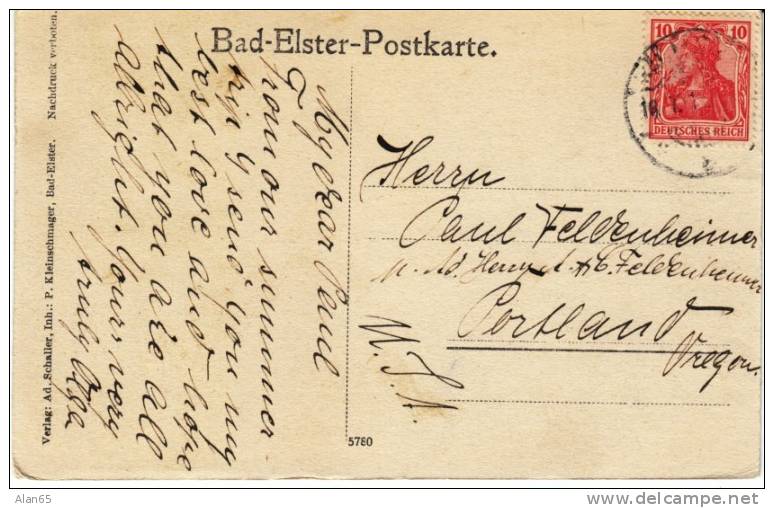 Bad-Elster-Postkarte.
10 10
DEUTSCHES REICH
My dear Paul
From our summer
trip y send you my
best love and hope
that you are all
allright. Yours very
truly Olga
Herrn
Paul Feldenheimer
Feldenheimer
Portland
Oregon.
U. S. A.
5780
Verlag: Ad. Schaller, Inh.: P. Kleinschmager, Bad-Elster. Nachdruck verboten.
Alan65
delcampe.net